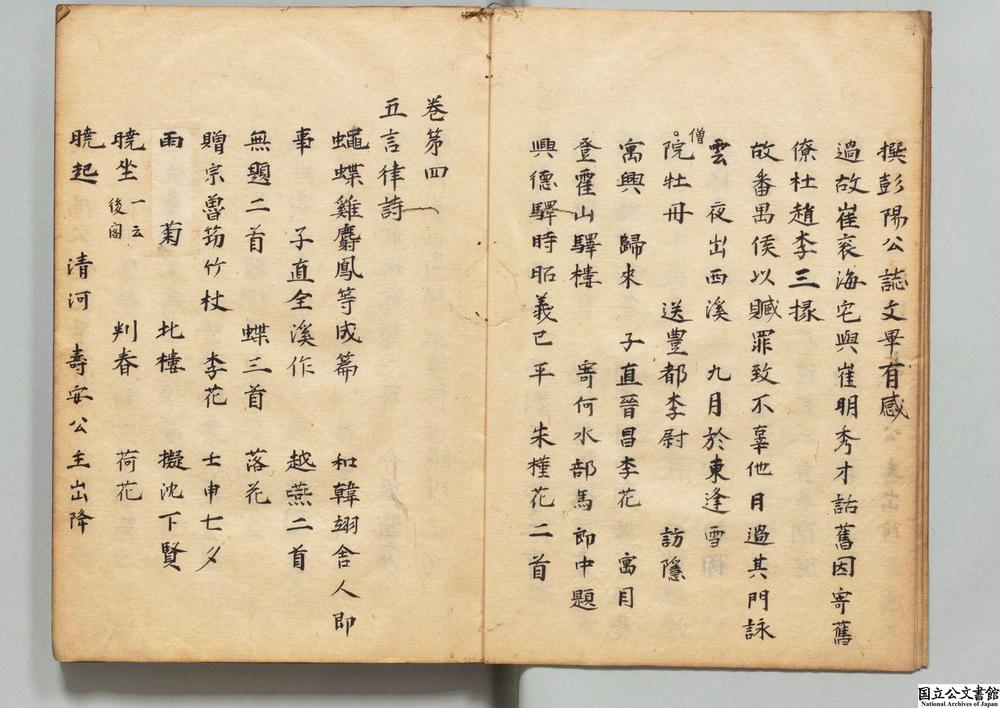 撰彭陽公誌文畢有感
過故崔兗海宅與崔明秀才話舊因寄舊
僚杜趙李三掾
故番禺侯以贓罪致不辜他日過其門詠
雲 夜出西溪 九月於東逢雪
僧
院牡丹 送豐都李尉 訪隱
寓興 歸來 子直晉昌李花 寓目
登霍山驛樓 寄何水部馬郎中題
興德驛時昭義已平 朱槿花二首
卷第四
五言律詩
蠅蝶雞麝鳳等成篇 和韓翊舍人即
事 子直全溪作 越燕二首
無題二首 蝶三首 落花
贈宗魯筇竹杖 李花 士申七夕
雨 菊 北樓 擬沈下賢
曉坐 一云後閣 判春 荷花
曉起 清河 壽安公主出降
国立公文書館
National Archives of Japan